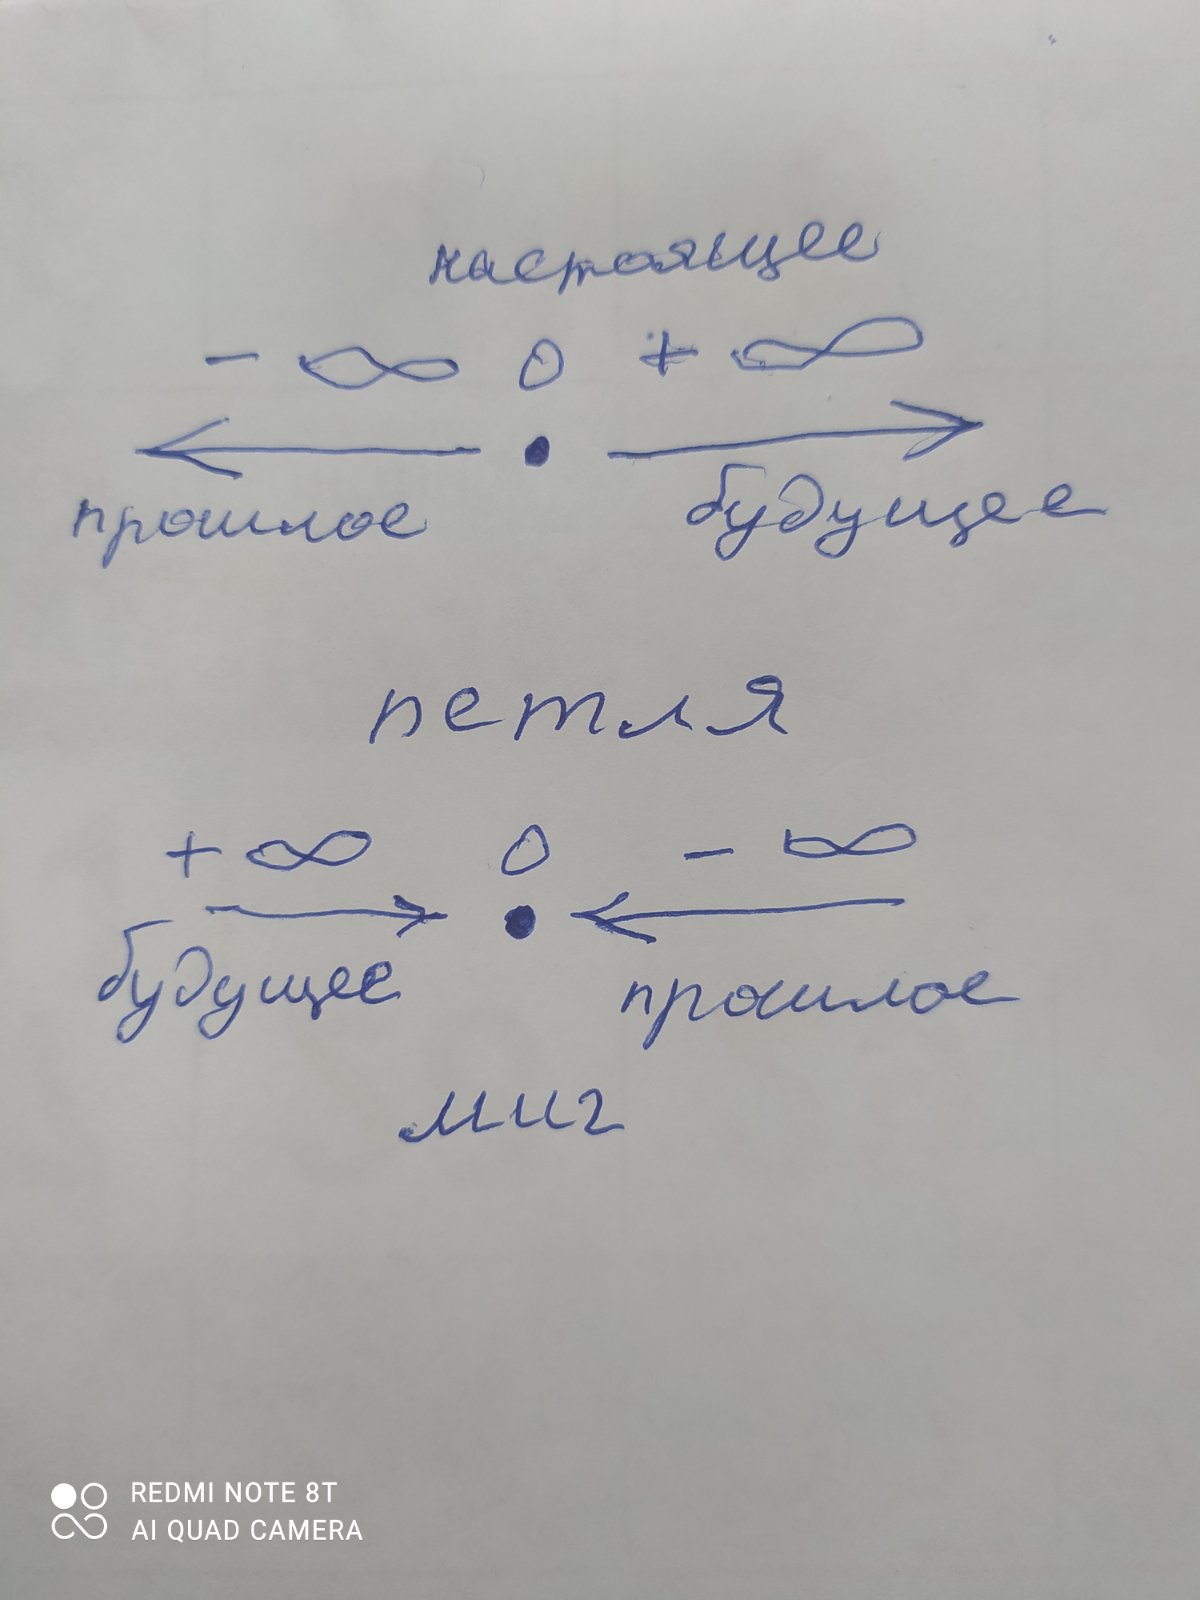 настоящее
- ∞ 0 + ∞
прошлое будущее
петля
+ ∞ 0 - ∞
будущее прошлое
миг
REDMI NOTE 8T
AI QUAD CAMERA